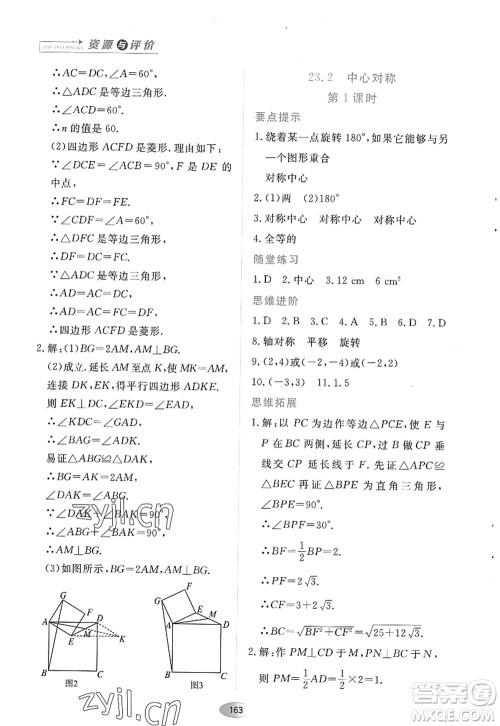 资源与评价
∴AC=DC,∠A=60°,
∴△ADC 是等边三角形.
∴n 的值是 60.
(2)四边形 ACFD 是菱形.理由:
∵∠DCE=∠ACB=90°,F 是 DE 的
中点,
∴FC=DF=FE.
∵∠CDF=∠A=60°,
∴△DFC 是等边三角形.
∴DF=DC=FC.
∵△ADC 是等边三角形,
∴AD=AC=DC.
∴AD=AC=FC=DF.
∴四边形 ACFD 是菱形.
2.解:(1)BG=2AM,AM⊥BG.
(2)成立.延长 AM 至点 K,使 MK=AM,
连接 DK,EK.得平行四边形 ADKE.
则 EK⊥DK,EK=DK.
∵∠BAG=∠ADK,
易证△BAG≌△ADK.
∴∠DAK=∠ABG.
∵∠DAK+∠BAK=90°,
∴∠ABG+∠BAK=90°,
∴AM⊥BG.
(3)如图所示,AM⊥BG,BG=2AM.
G
F
E
M
A
D
B
C
图2
G
F
E
A
D
B
C
图3
23.2 中心对称
第 1 课时
要点提示
1.绕着某一点旋转 180° 能够与另
一个图形重合
对称中心
2.(1)两 (2)180°
3.对称中心 对称中心
4.全等的
随堂练习
1.D 2.中心 3.12 cm 6 cm²
思维进阶
1.D 2.A 3.D 4.B 5.C 6.D 7.D
8.轴对称 平移 旋转
9.(2,4)或(-2,-4)或(-2,4)
10.(-3,3) 11.1.5
思维拓展
1.解:以 PC 为边作等边△PCE,使 E,
P 在 BC 两侧,延长 BP,过 C 作 CF⊥
BP 交 BP 延长线于 F,证△APC≌
△BEC 再证△BPE 为直角三角形,
∴∠BPE=90°.
∴∠FPC=30°.
∴BF=½BP=2½.
∴FC=½PC=2√3.
∴BC=√(BF²+CF²)=√(25+12√3).
2.解:作 PM⊥DC 于 M,PN⊥BC 于 N,
则 PM=½AD=½,PN=½AB=1,
163
zyjl.cn
zyjl.cn